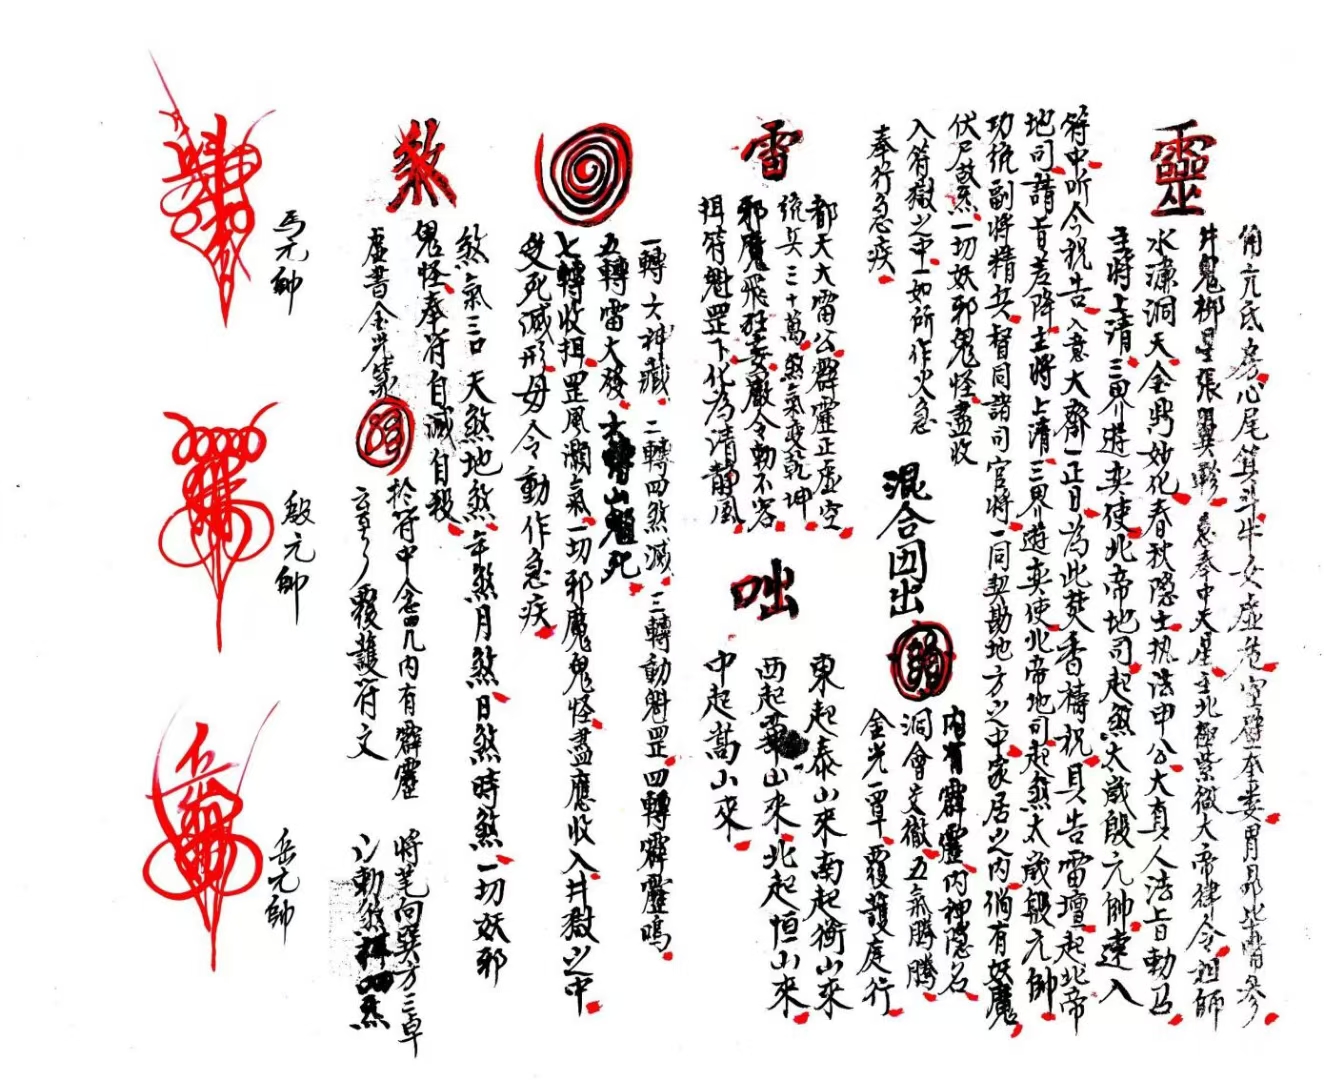 靈
角亢氐房心尾箕斗牛女虛危室壁奎婁胃昴畢觜參
井鬼柳星張翼軫 急奉中天星主北極紫微大帝律令祖師
水濂洞天金鼎妙化春秋隱士执法申公大真人法旨勅召
主將上清三界遊奕使北帝地司起煞太歲殷元帥速入
符中听令祝告入意大齋一正日為此焚香禱祝具告雷壇起北帝
地司請旨差降主將上清三界遊奕使北帝地司起煞太歲殷元帥
功統副將精兵督同諸司官將一同契勘地方之中家居之内倘有妖魔
伏尸故炁一切妖邪鬼怪盡收
入符獄之中一如所作火急
奉行急疾
混合団出
内有霹靂内神隱名
洞會交徹五氣騰騰
金光一罩覆護庭行
雷
都天大雷公霹靂正虛空
統兵三十萬煞氣变乾坤
邪魔飛狂妄嚴令勅不容
揖符魁罡下化為清靜風
咄
東起泰山來南起衡山來
西起華山來北起恒山來
中起嵩山來
一轉大神藏 二轉四煞滅 三轉動魁罡 四轉霹靂鳴
五轉雷大發 六轉山魈死
七轉收揖罡風瀬氣一切邪魔鬼怪盡應收入井獄之中
受死滅形毋令動作急疾
煞
煞氣三口天煞地煞年煞月煞日煞時煞一切妖邪
鬼怪奉符自滅自殺
虛書金光篆
於符中念四凡内有霹靂
云云了覆護符文
將笔向巽方三卓
勅煞揖四煞
馬元帥
殷元帥
岳元帥